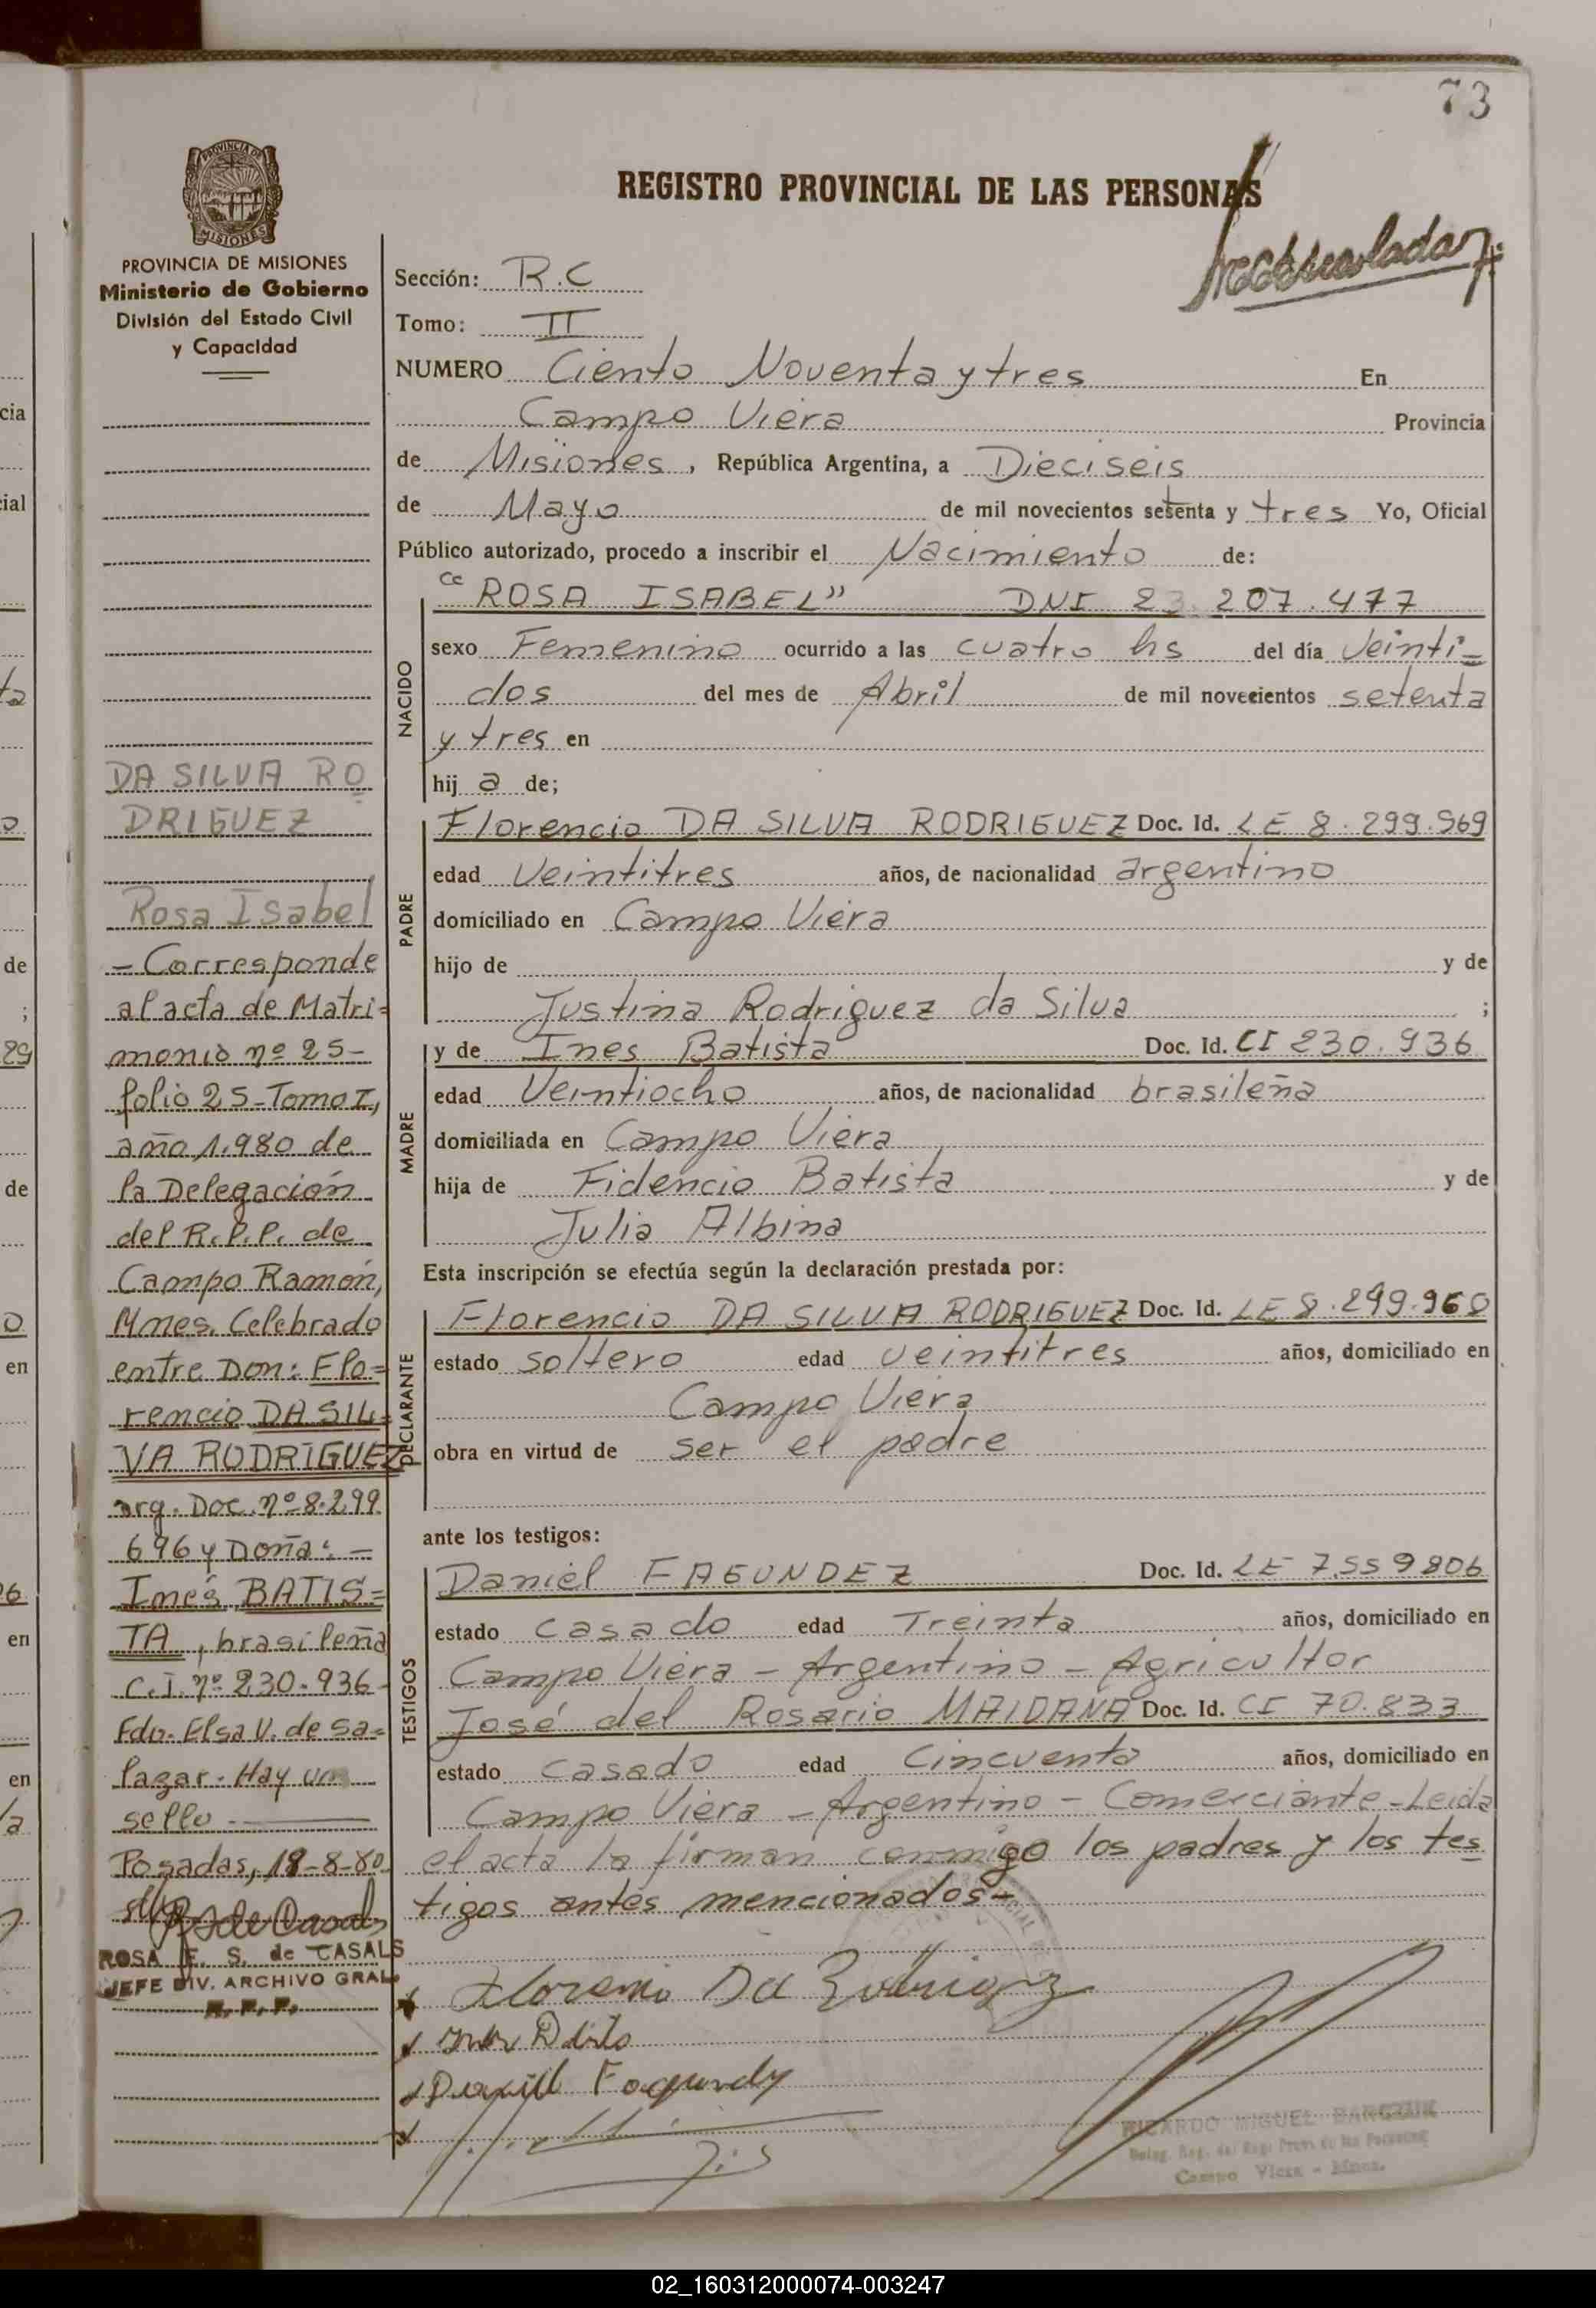 73
REGISTRO PROVINCIAL DE LAS PERSONAS
PROVINCIA DE
MISIONES
PROVINCIA DE MISIONES
Ministerio de Gobierno
División del Estado Civil
y Capacidad
DA SILVA RO
DRIGUEZ
Rosa Isabel
- Corresponde
al acta de Matri=
monio nº 25-
folio 25-Tomo I,
año 1.980 de
la Delegación
del R.P.P. de
Campo Ramón,
Mnes. Celebrado
entre Don: Flo=
rencio DA SIL=
VA RODRIGUEZ
arg. Doc. nº 8.299
696 y Doña: -
Inés BATIS=
TA, brasileña
C.I. nº 230.936-
Fdo. Elsa V. de Sa=
lazar. Hay un
sello.
Posadas, 18-8-80
ROSA E. S. de CASALS
JEFE DIV. ARCHIVO GRAL.
Sección: R.C
Tomo: II
NUMERO Ciento Noventa y tres En
Campo Viera Provincia
de Misiones, República Argentina, a Dieciseis
de Mayo de mil novecientos setenta y tres Yo, Oficial
Público autorizado, procedo a inscribir el Nacimiento de:
"ROSA ISABEL" DNI 23.207.477
NACIDO
sexo Femenino ocurrido a las cuatro hs del día Veinti-
dos del mes de Abril de mil novecientos setenta
y tres en
hij a de;
PADRE
Florencio DA SILVA RODRIGUEZ Doc. Id. LE 8.299.969
edad Veintitres años, de nacionalidad argentino
domiciliado en Campo Viera
hijo de y de
Justina Rodriguez da Silva ;
MADRE
y de Ines Batista Doc. Id. CI 230.936
edad Veintiocho años, de nacionalidad brasileña
domiciliada en Campo Viera
hija de Fidencio Batista y de
Julia Albina
Esta inscripción se efectúa según la declaración prestada por:
DECLARANTE
Florencio DA SILVA RODRIGUEZ Doc. Id. LE 8.299.960
estado soltero edad veintitres años, domiciliado en
Campo Viera
obra en virtud de ser el padre
ante los testigos:
TESTIGOS
Daniel FAGUNDEZ Doc. Id. LE 7559806
estado casado edad Treinta años, domiciliado en
Campo Viera - Argentino - Agricultor
José del Rosario MAIDANA Doc. Id. CI 70.833
estado casado edad Cincuenta años, domiciliado en
Campo Viera - Argentino - Comerciante - Leida
el acta la firman conmigo los padres y los tes
tigos antes mencionados-
Florencio Da Rodriguez
RICARDO MIGUEL
Campo Viera - Mnes.
cia
cial
de
;
89
de
en
en
en
02_160312000074-003247